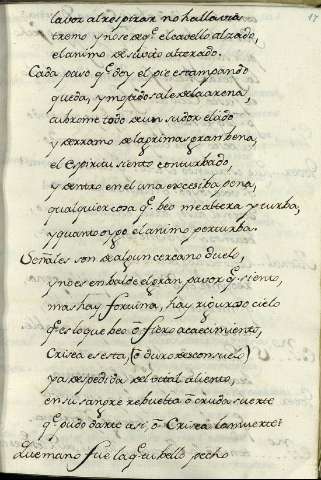 17
la voz al respirar no halla via
tremo y no se de q.^e el cavello alzado,
el animo de suvito alterado.
Cada paso q.^e doy el pie estampando
queda, y mojado sale de la arena,
cubrome todo de un sudor elado
y derramo de lagrimas gran bena,
el espiritu siento conturbado,
y dentro en el una excesiba pena,
qualquier cosa q.^e beo me altera y turba,
y quanto oygo el animo perturba.
Señales son de algun cercano duelo,
y no es en balde el gran pavor q.^e siento,
mas hay fortuna, hay riguroso cielo
q.^e es lo que beo ô fiero acaecimiento,
Crisea es esta, (ô duro desconsuelo)
ya despedida del vital aliento,
en su sangre rebuelta ô cruda suerte
q.^e pudo darte asi, ô Crisea la muerte?
Que mano fue la q.^e tu bello pecho